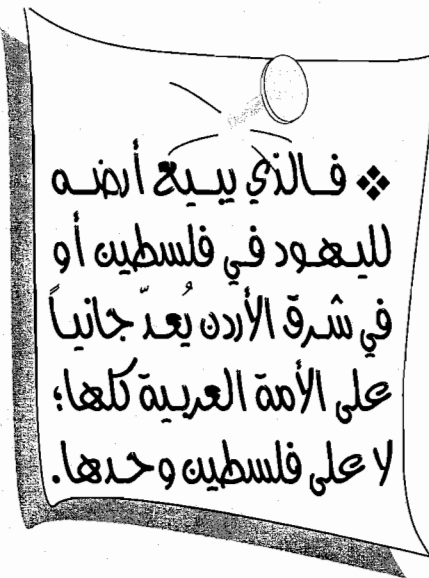 ❖ فالذي يبيع أرضه
لليهود في فلسطين أو
في شرق الأردن يُعدّ جانياً
على الأمة العربية كلها؛
لا على فلسطين وحدها.